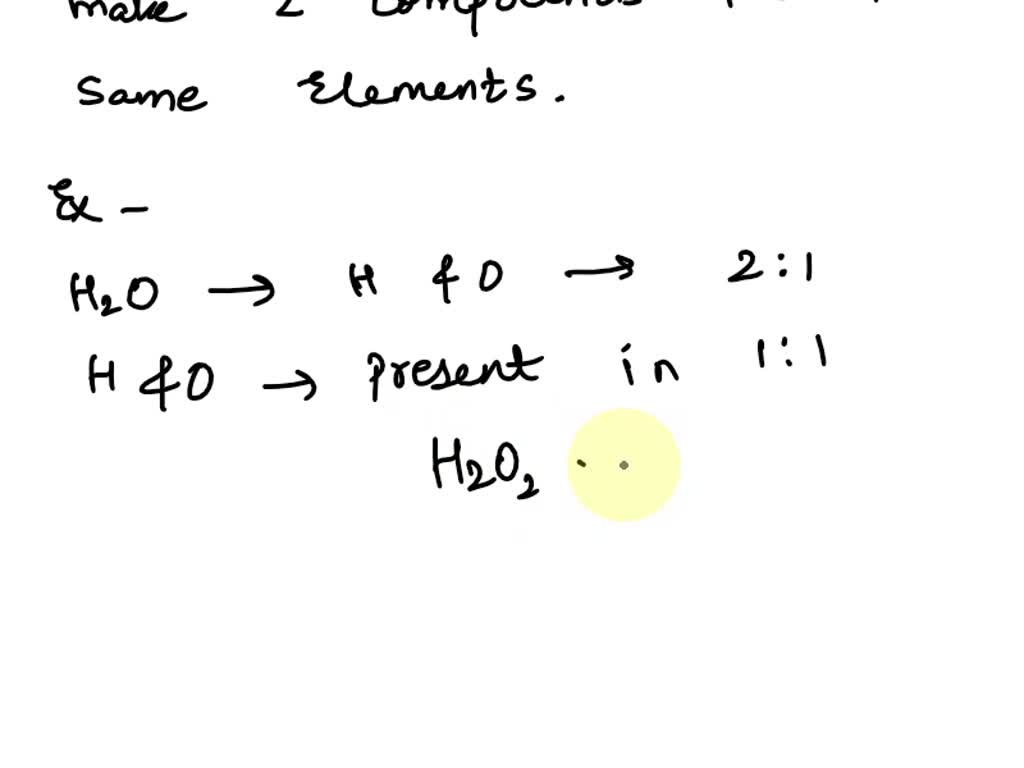 make 2 compounds
Same Elements.
Ex -
H₂O → H & O → 2:1
H & O → present in 1:1
H₂O₂